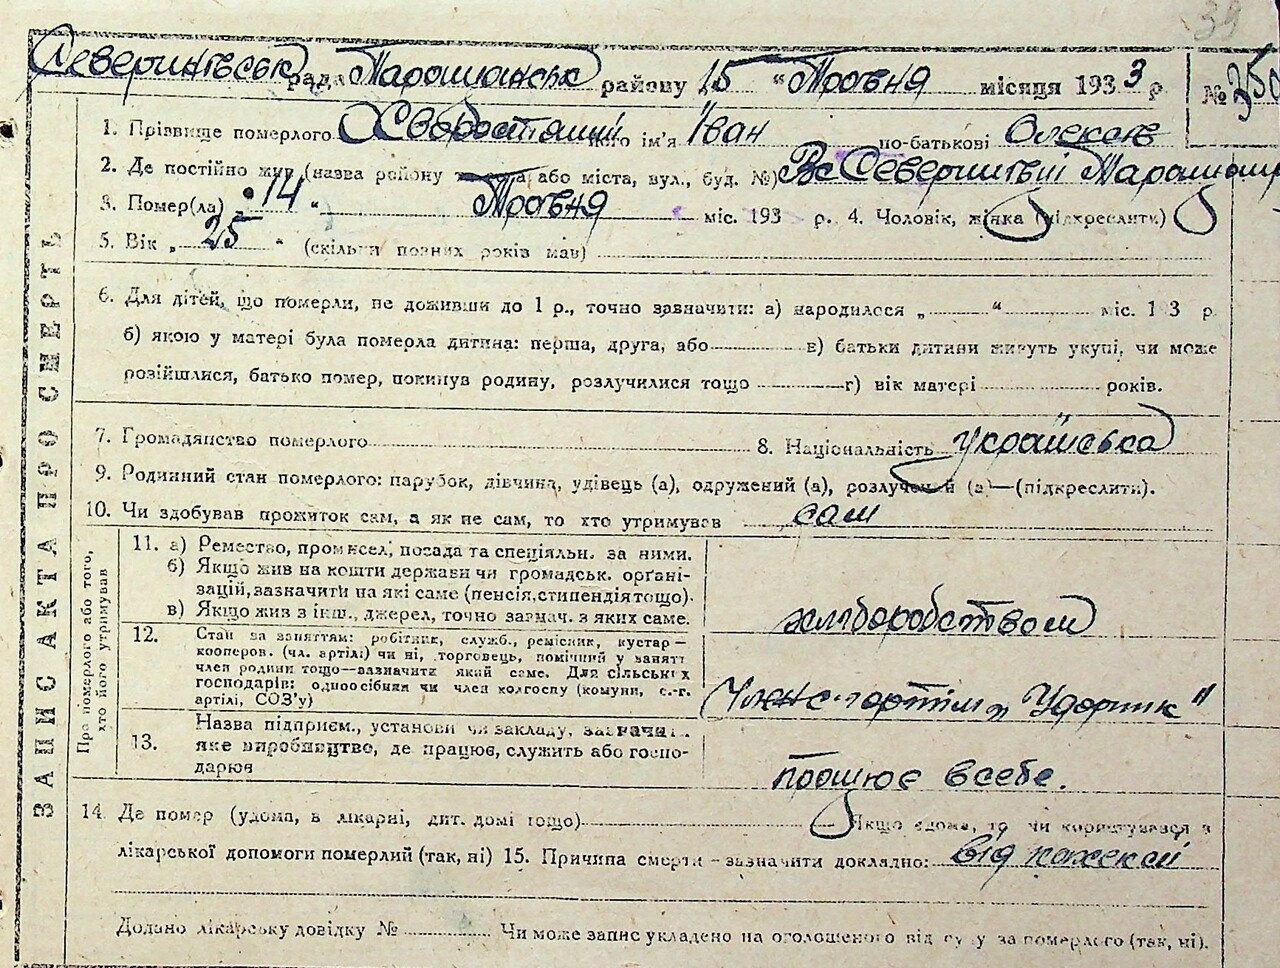 39
Северинівськ рада Таращанськ району 15 " Травня місяця 1933 р. № 250
ЗАПИС АКТА ПРО СМЕРТЬ
1. Прізвище померлого його ім'я Іван по-батькові Олексів
2. Де постійно жив (назва району та села або міста, вул., буд. №) Северинівці
3. Помер(ла) „14 " Травня міс. 193 р. 4. Чоловік, жінка (підкреслити)
5. Вік „ 25 " (скільки повних років мав)
6. Для дітей, що померли, не доживши до 1 р., точно зазначити: а) народилося „ " міс. 193 р.
б) якою у матері була померла дитина: перша, друга, або в) батьки дитини живуть укупі, чи може
розійшлися, батько помер, покинув родину, розлучилися тощо г) вік матері років.
7. Громадянство померлого 8. Національність українська
9. Родинний стан померлого: парубок, дівчина, удівець (а), одружений (а), розлучений (а)—(підкреслити).
10. Чи здобував прожиток сам, а як не сам, то хто утримував сам
Про померлого або того, хто його утримував
11. а) Ремество, промисел, посада та спеціяльн. за ними.
б) Якщо жив на кошти держави чи громадськ. орґані-
зацій, зазначити на які саме (пенсія, стипендія тощо).
в) Якщо жив з інш., джерел, точно зазнач. з яких саме.
хліборобством
12. Стан за заняттям: робітник, служб., ремісник, кустар—
кооперов. (чл. артілі) чи ні, торговець, помічний у занятті
член родини тощо—зазначити який саме. Для сільських
господарів: одноосібник чи член колгоспу (комуни, с.-г.
артілі, СОЗ'у)
Член с. г артіли „Ударник"
13. Назва підприєм., установи чи закладу, зазначит.
яке виробництво, де працює, служить або госпо-
дарює
працює в себе.
14. Де помер (удома, в лікарні, дит. домі тощо) Якщо вдома, то чи користувався з
лікарської допомоги померлий (так, ні) 15. Причина смерти – зазначити докладно: від
Додано лікарську довідку № Чи може запис укладено на оголошеного від суду за померлого (так, ні).